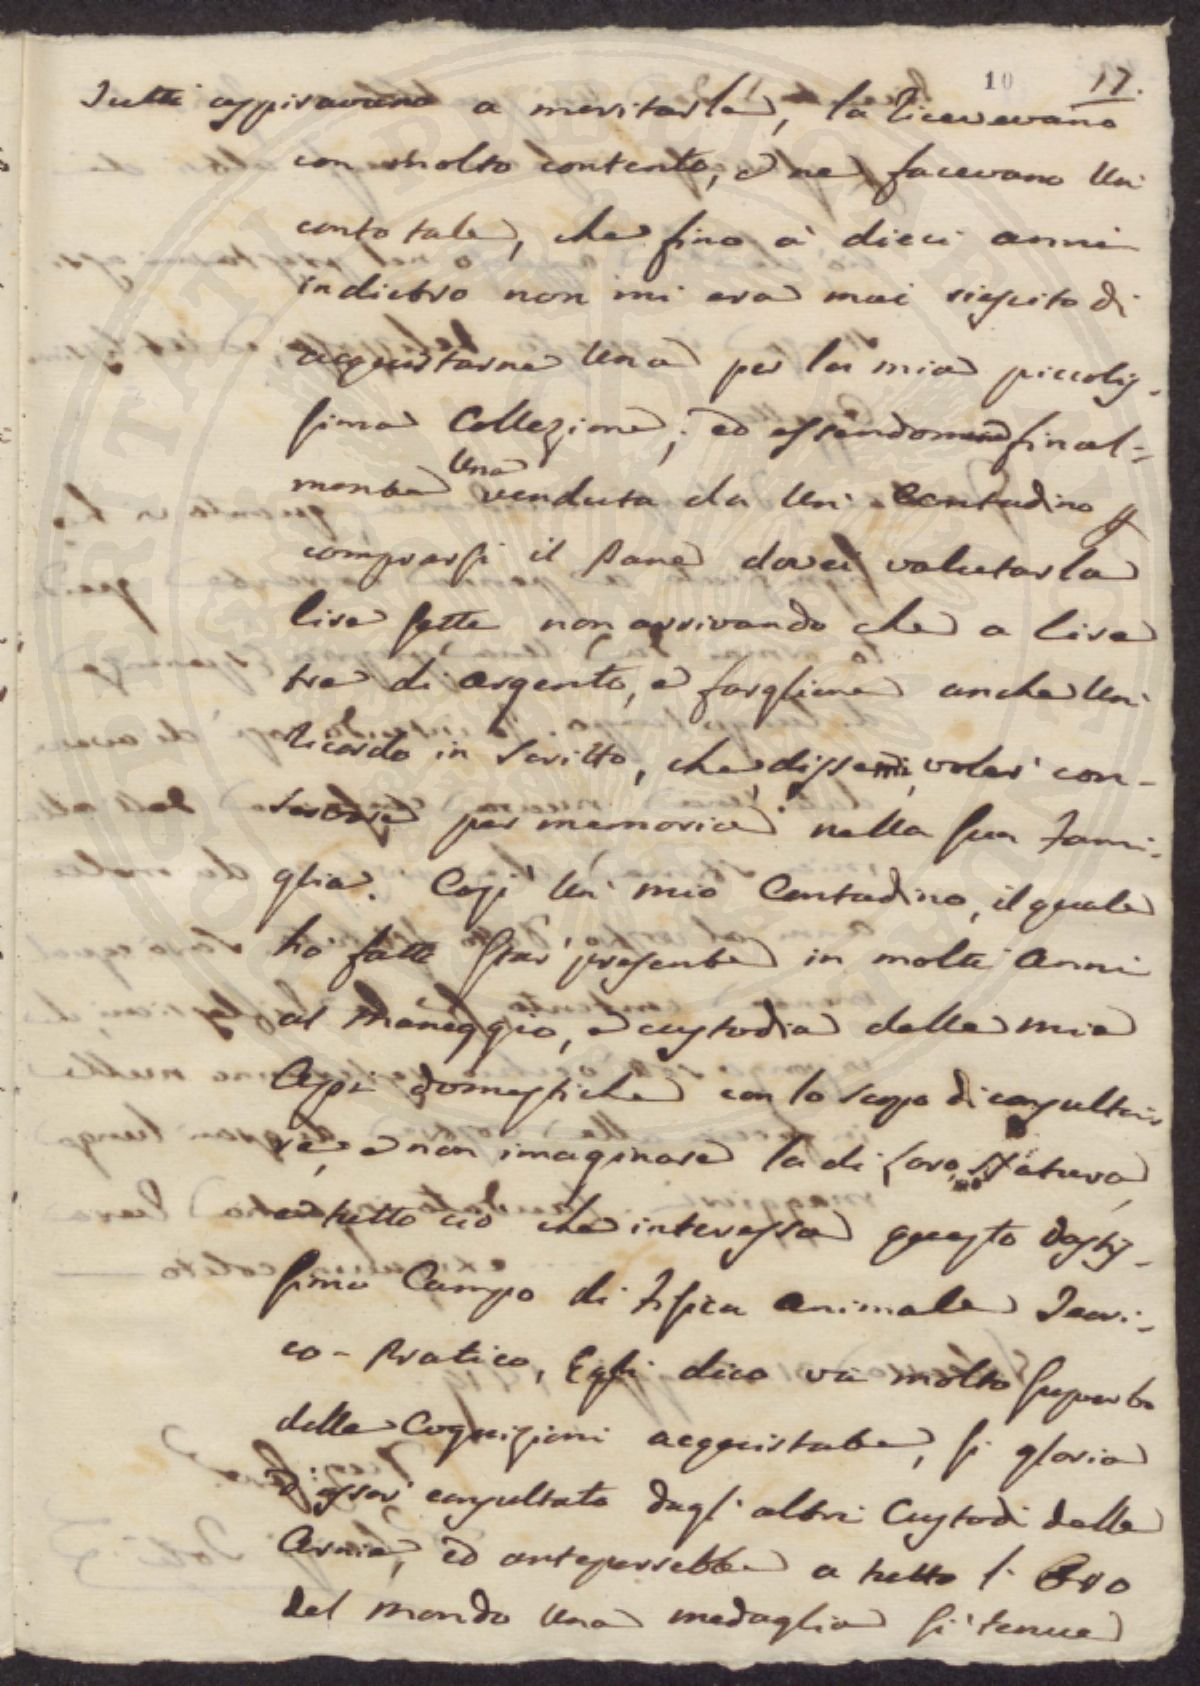 10 17.
Tutti aspiravano a meritarle, la Ricevevano
con molto contento, e ne facevano un
conto tale, che fino a dieci anni
indietro non mi era mai riescito di
acquistarne una per la mia piccolis-
sima Collezione; ed essendomene final-
mente una venduta da un Contadino
comprarsi il Pane dovei valutarla
lire sette non arrivando che a lire
tre di argento, e fargliene anche un
Ricordo in Scritto, che, dissemi, voler con-
servare per memoria nella sua Fami-
glia. Così un mio Contadino, il quale
ho fatto star presente in molti anni
al maneggio, e custodia delle mie
Api domestiche con lo scopo di consulta-
re, e non imaginare la di loro Natura,
e tutto ciò che interessa questo vastis-
simo Campo di Fisica animale Teori-
co-Pratico, Egli dico va molto superbo
delle Cognizioni acquistate, si gloria
d'esser consultato dagl'altri Custodi delle
Arnie, ed anteporrebbe a tutto l'Oro
del mondo una medaglia sì tenue